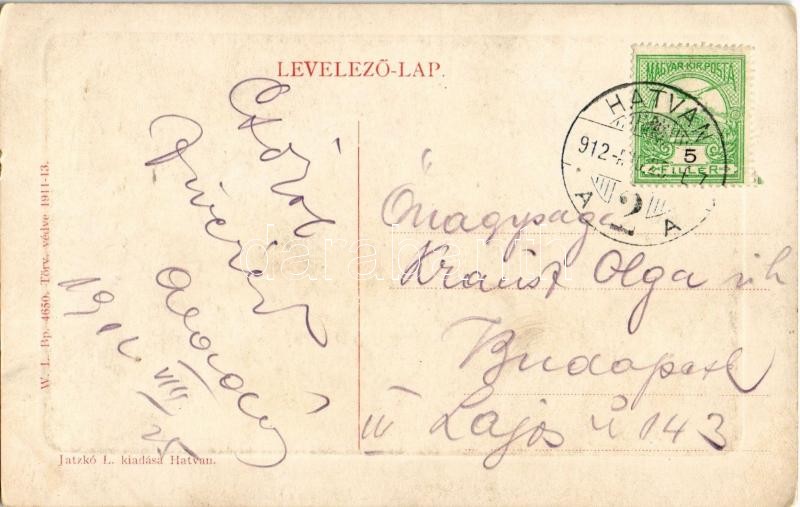 LEVELEZŐ-LAP.
MAGYAR KIR. POSTA
5
FILLÉR
HATVAN
912
A 2 A
Csókol
Aladár
1912 VIII 25
Őnagysága
Krausz Olga
Budapest
III Lajos u 143
W. L. Bp. 4650. Törv. védve 1911-13.
Jatzkó L. kiadása Hatvan.
darabanth